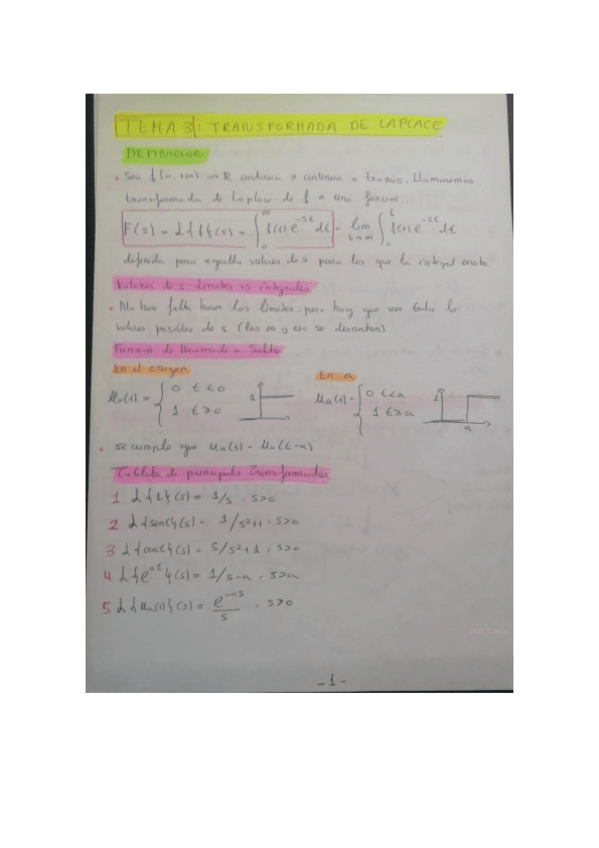 TEMA 3: TRANSFORMADA DE LAPLACE
DEFINICION
• Sea f [0, +∞) → R continua o continua a trozos. Llamaremos
transformada de Laplace de f a una funcion...
F(s) = L{f}(s) = ∫₀^∞ f(t) e^-st dt = lim b→∞ ∫₀^b f(t) e^-st dt
definida para aquellos valores de s para los que la integral exista
Valores de s limites vs integrales
• No hace falta hacer los limites, pero hay que ver todos lo
valores posibles de s (los ∞ y eso se descartan)
Funcion de Heaviside o Salto
En el origen
En a
u₀(t) = { 0 t<0
1 t>0
1
ua(t) = { 0 t<a
1 t>a
1
a
• se cumple que ua(t) = u₀(t-a)
Tablita de principales transformadas
1 L{1}(s) = 1/s , s>0
2 L{sent}(s) = 1/s²+1 , s>0
3 L{cost}(s) = s/s²+1 , s>0
4 L{e^at}(s) = 1/s-a , s>a
5 L{ua(t)}(s) = e^-as / s , s>0
-1-